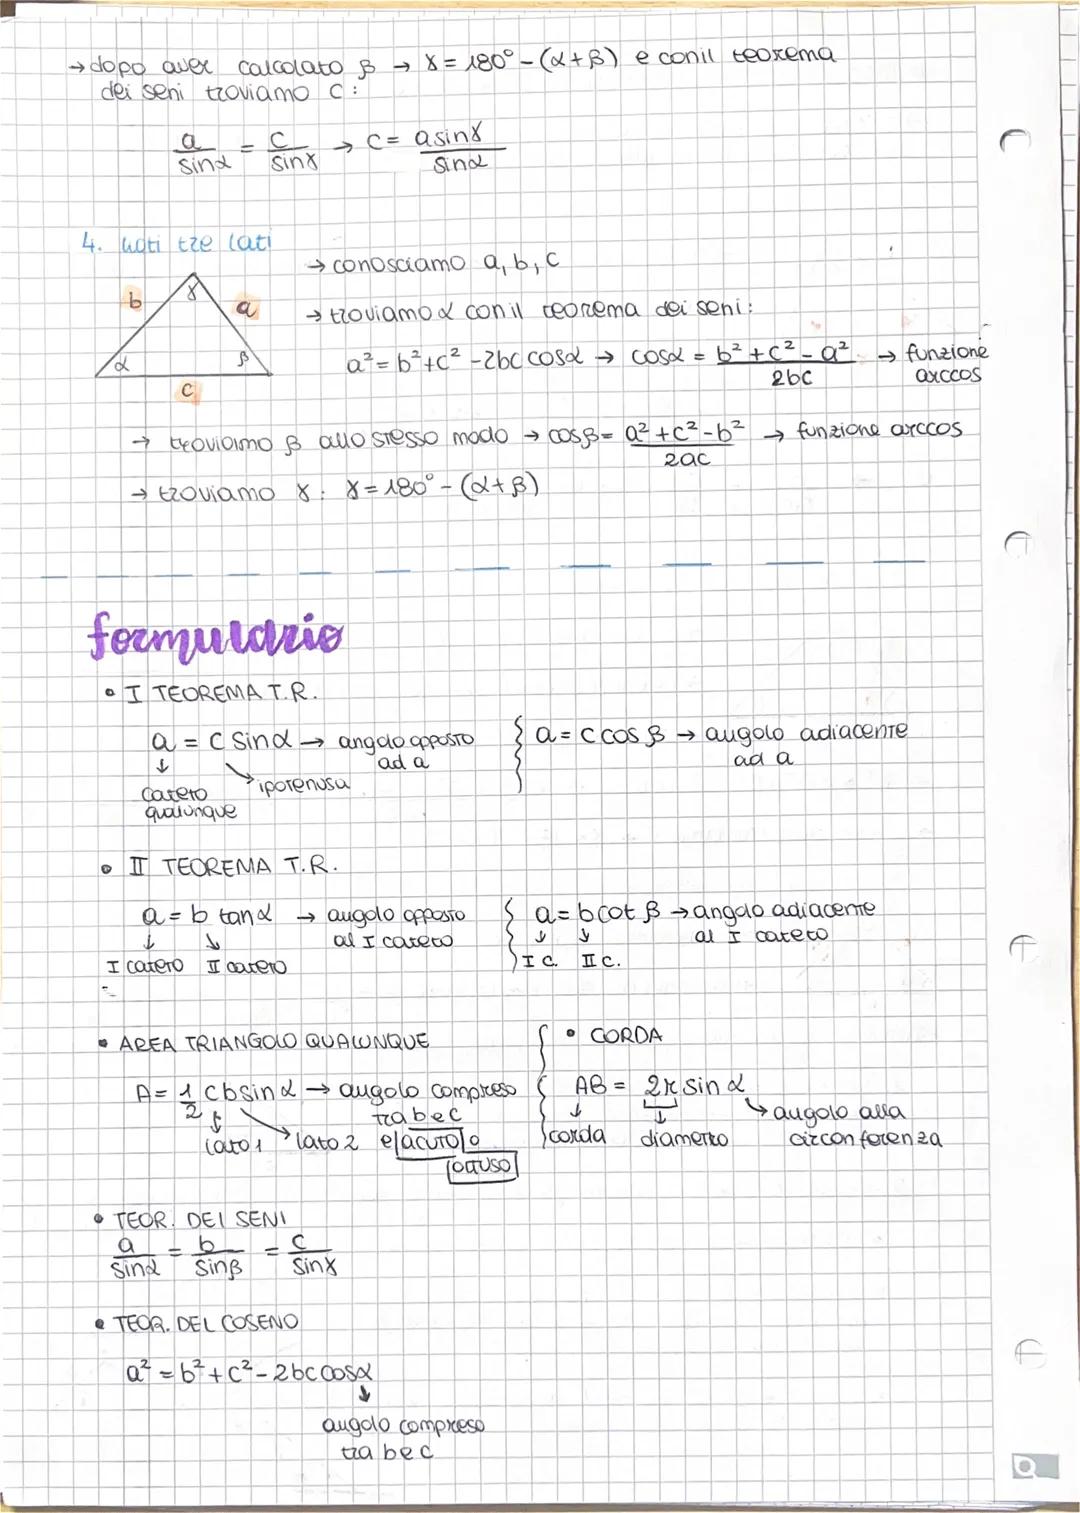 → dopo aver calcolato β → γ = 180° - (α+β) e con il teorema
dei seni troviamo c:
a/sinα = c/sinγ → c = a sinγ/sinα
4. noti tre lati
→ conosciamo a, b, c
b γ a
→ troviamo α con il teorema dei seni:
α β
a² = b²+c² -2bc cosα → cosα = b²+c²-a²/2bc → funzione
arccos
c
→ troviamo β allo stesso modo → cosβ = a²+c²-b²/2ac → funzione arccos
→ troviamo γ: γ = 180° - (α+β)
formulario
• I TEOREMA T.R.
a = c sinα → angolo opposto
ad a
↓ cateto
qualunque
↘ ipotenusa
{ a = c cos β → angolo adiacente
ad a
• II TEOREMA T.R.
a = b tanα → angolo opposto
al I cateto
↓ ↓
I cateto II cateto
{ a = b cot β → angolo adiacente
al I cateto
↓ ↓
I C. II C.
• AREA TRIANGOLO QUALUNQUE
A = 1/2 cb sinα → angolo compreso
tra b e c
lato 1 lato 2 e acuto o
ottuso
{ • CORDA
AB = 2r sin α
↓ ↓ ↘ angolo alla
corda diametro circonferenza
• TEOR. DEI SENI
a/sinα = b/sinβ = c/sinγ
• TEOR. DEL COSENO
a² = b²+c²-2bc cosα
↓
angolo compreso
tra b e c